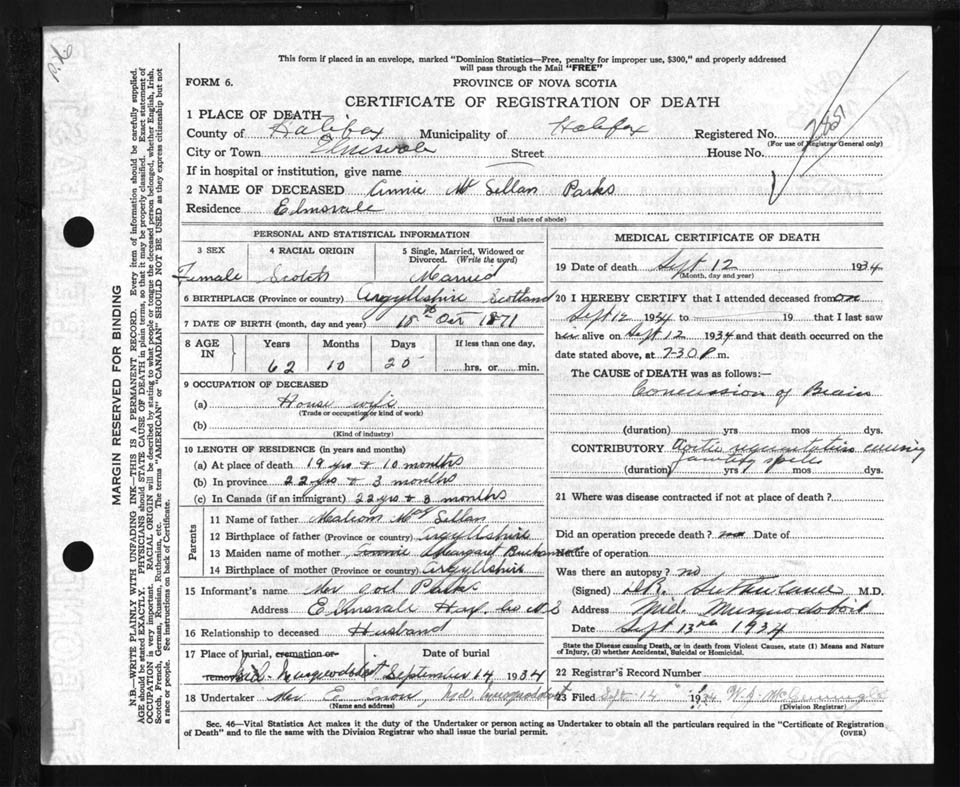 This form if placed in an envelope, marked "Dominion Statistics—Free, penalty for improper use, $300," and properly addressed
will pass through the Mail "FREE"
FORM 6.
PROVINCE OF NOVA SCOTIA
CERTIFICATE OF REGISTRATION OF DEATH
1 PLACE OF DEATH
County of Halifax Municipality of Halifax Registered No. 2857
(For use of Registrar General only)
City or Town Elmsvale Street House No.
If in hospital or institution, give name
2 NAME OF DECEASED Annie Mc Lellan Parks
Residence Elmsvale
(Usual place of abode)
PERSONAL AND STATISTICAL INFORMATION
3 SEX 4 RACIAL ORIGIN 5 Single, Married, Widowed or
Divorced. (Write the word)
Female Scotch Married
6 BIRTHPLACE (Province or country) Argyllshire Scotland
7 DATE OF BIRTH (month, day and year) 18th Oct 1871
8 AGE IN Years Months Days If less than one day,
62 10 25 hrs. or min.
9 OCCUPATION OF DECEASED
(a) House wife
(Trade or occupation or kind of work)
(b)
(Kind of industry)
10 LENGTH OF RESIDENCE (in years and months)
(a) At place of death 19 yrs & 10 months
(b) In province 22 yrs & 3 months
(c) In Canada (if an immigrant) 22 yrs & 3 months
Parents
11 Name of father Mc Lellan
12 Birthplace of father (Province or country) Argyllshire
13 Maiden name of mother Margaret Buchanan
14 Birthplace of mother (Province or country) Argyllshire
15 Informant's name Mr Joel Parks
Address Elmsvale Hfx. Co N S
16 Relationship to deceased Husband
17 Place of burial, cremation or removal Date of burial
Mid. Musquodoboit September 14 1934
18 Undertaker Mr E. Snow, Mid Musquodoboit
(Name and address)
MEDICAL CERTIFICATE OF DEATH
19 Date of death Sept 12 1934
(Month, day and year)
20 I HEREBY CERTIFY that I attended deceased from on
Sept 12 1934 to 19 that I last saw
her alive on Sept 12 1934 and that death occurred on the
date stated above, at 7-30 P. m.
The CAUSE of DEATH was as follows:—
Concussion of Brain
(duration) yrs mos dys.
CONTRIBUTORY Aortic regurgitation causing
fainting spells
(duration) yrs mos dys.
21 Where was disease contracted if not at place of death?
Did an operation precede death? no Date of
Name of operation
Was there an autopsy? no
(Signed) D.R. Sutherland M.D.
Address Mid. Musquodoboit
Date Sept 13th 1934
State the Disease causing Death, or in death from Violent Causes, state (1) Means and Nature
of Injury, (2) whether Accidental, Suicidal or Homicidal.
22 Registrar's Record Number
23 Filed Sept 14 1934 W. J.
(Division Registrar)
Sec. 46—Vital Statistics Act makes it the duty of the Undertaker or person acting as Undertaker to obtain all the particulars required in the "Certificate of Registration
of Death" and to file the same with the Division Registrar who shall issue the burial permit.
(OVER)
MARGIN RESERVED FOR BINDING
N.B.—WRITE PLAINLY WITH UNFADING INK—THIS IS A PERMANENT RECORD. Every item of information should be carefully supplied.
AGE should be stated EXACTLY. PHYSICIANS should STATE CAUSE OF DEATH in plain terms, so that it may be properly classified. Exact statement of
OCCUPATION is very important. RACIAL ORIGIN will be described by stating to what people or tongue the deceased person belonged, whether English, Irish,
Scotch, French, German, Russian, Ruthenian, etc. The terms "AMERICAN" or "CANADIAN" SHOULD NOT BE USED as they express citizenship but not
a race or people. See instructions on back of Certificate.